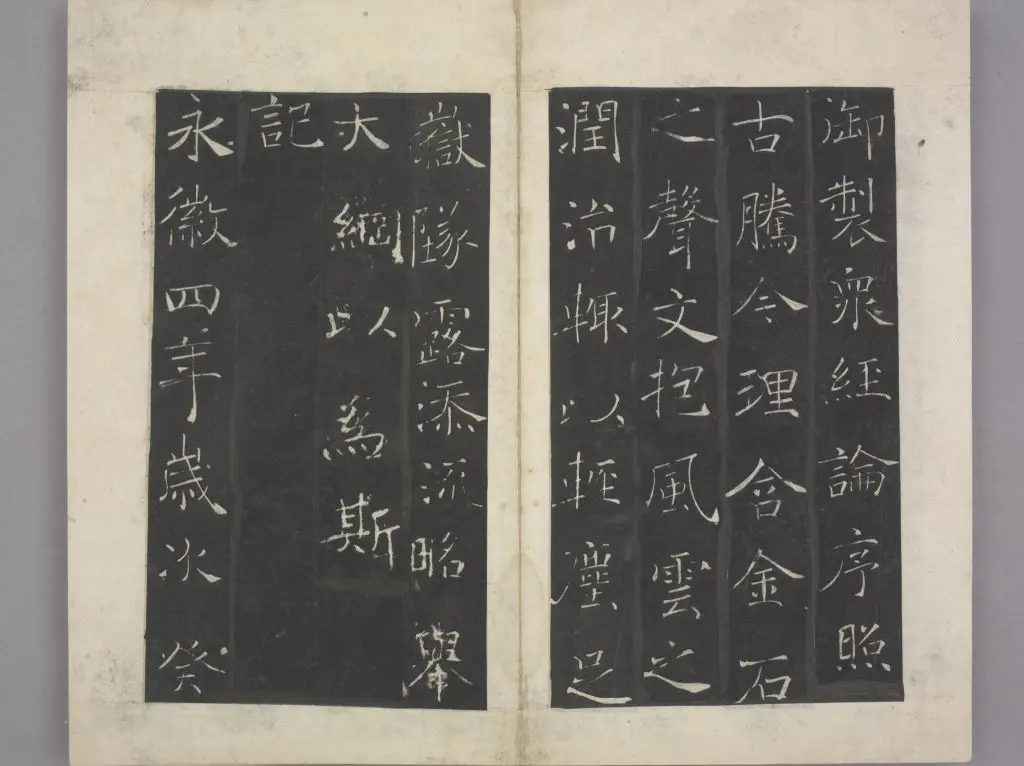 御製衆經論序照
古騰今理含金石
之聲文抱風雲之
潤治輙以輕塵足
嶽墜露添流略舉
大綱以為斯
記
永徽四年歲次癸